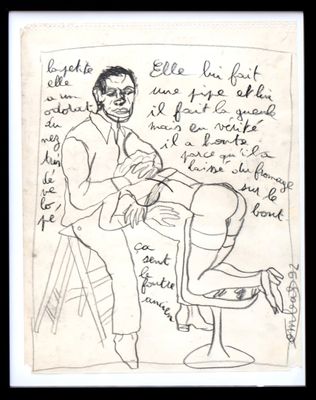 la petite
elle
a un
odorat
du
nez
très
dé
ve
lo,
pé
Elle lui fait
une pipe et lui
il fait la gueule
mais en vérité
il a honte
parce qu'il a
laissé du fromage
sur le
bout
ça
sent
le
foutre
ancien
ombas 92